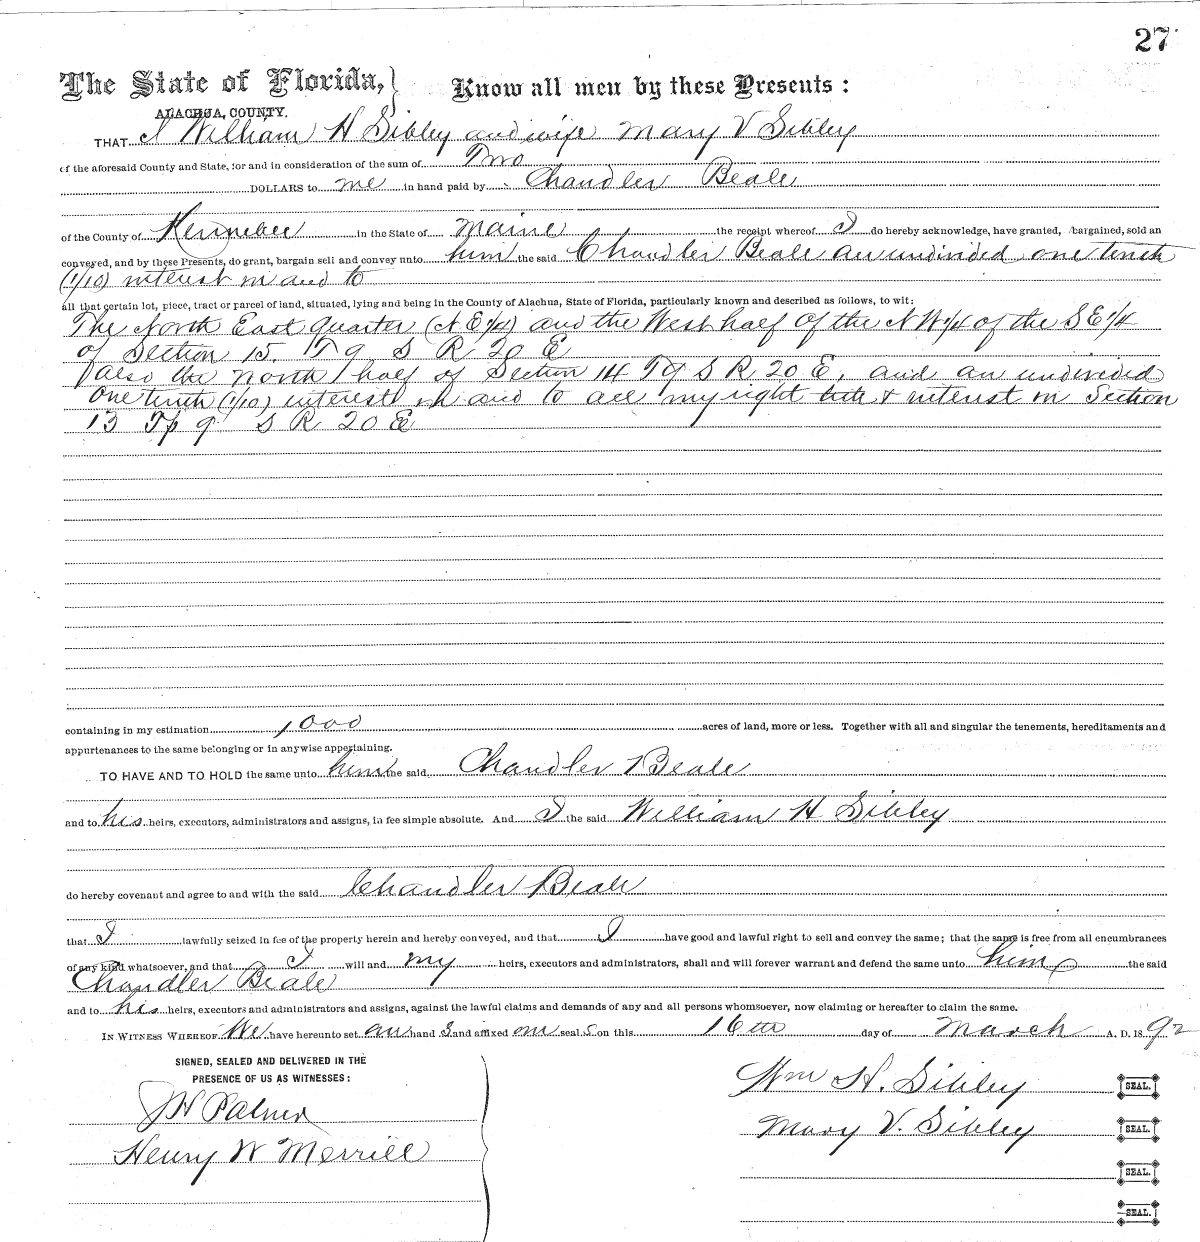 27
The State of Florida,} Know all men by these Presents:
ALACHUA, COUNTY.
THAT I William H Sibley and wife Mary V Sibley
of the aforesaid County and State, for and in consideration of the sum of Two
DOLLARS to me in hand paid by Chandler Beale
of the County of Kennebec in the State of Maine the receipt whereof I do hereby acknowledge, have granted, bargained, sold an
conveyed, and by these Presents, do grant, bargain sell and convey unto him the said Chandler Beale an undivided one tenth
(1/10) interest in and to
all that certain lot, piece, tract or parcel of land, situated, lying and being in the County of Alachua, State of Florida, particularly known and described as follows, to wit:
The North East quarter (N E 1/4) and the West half of the N W 1/4 of the S E 1/4
of Section 15. T 9 S R 20 E
also the North half of Section 14 T 9 S R 20 E. and an undivided
One tenth (1/10) interest in and to all my right title & interest in Section
13 Tp 9 S R 20 E
containing in my estimation 1000 acres of land, more or less. Together with all and singular the tenements, hereditaments and
appurtenances to the same belonging or in anywise appertaining.
TO HAVE AND TO HOLD the same unto him the said Chandler Beale
and to his heirs, executors, administrators and assigns, in fee simple absolute. And I the said William H Sibley
do hereby covenant and agree to and with the said Chandler Beale
that I lawfully seized in fee of the property herein and hereby conveyed, and that I have good and lawful right to sell and convey the same; that the same is free from all encumbrances
of any kind whatsoever, and that I will and my heirs, executors and administrators, shall and will forever warrant and defend the same unto him the said
Chandler Beale
and to his heirs, executors and administrators and assigns, against the lawful claims and demands of any and all persons whomsoever, now claiming or hereafter to claim the same.
IN WITNESS WHEREOF We have hereunto set our hand s and affixed our seal s on this 16th day of March A. D. 18 92
SIGNED, SEALED AND DELIVERED IN THE
PRESENCE OF US AS WITNESSES:
J H Palmer
Henry W Merrill
Wm H. Sibley SEAL.
Mary V. Sibley SEAL.
SEAL.
SEAL.